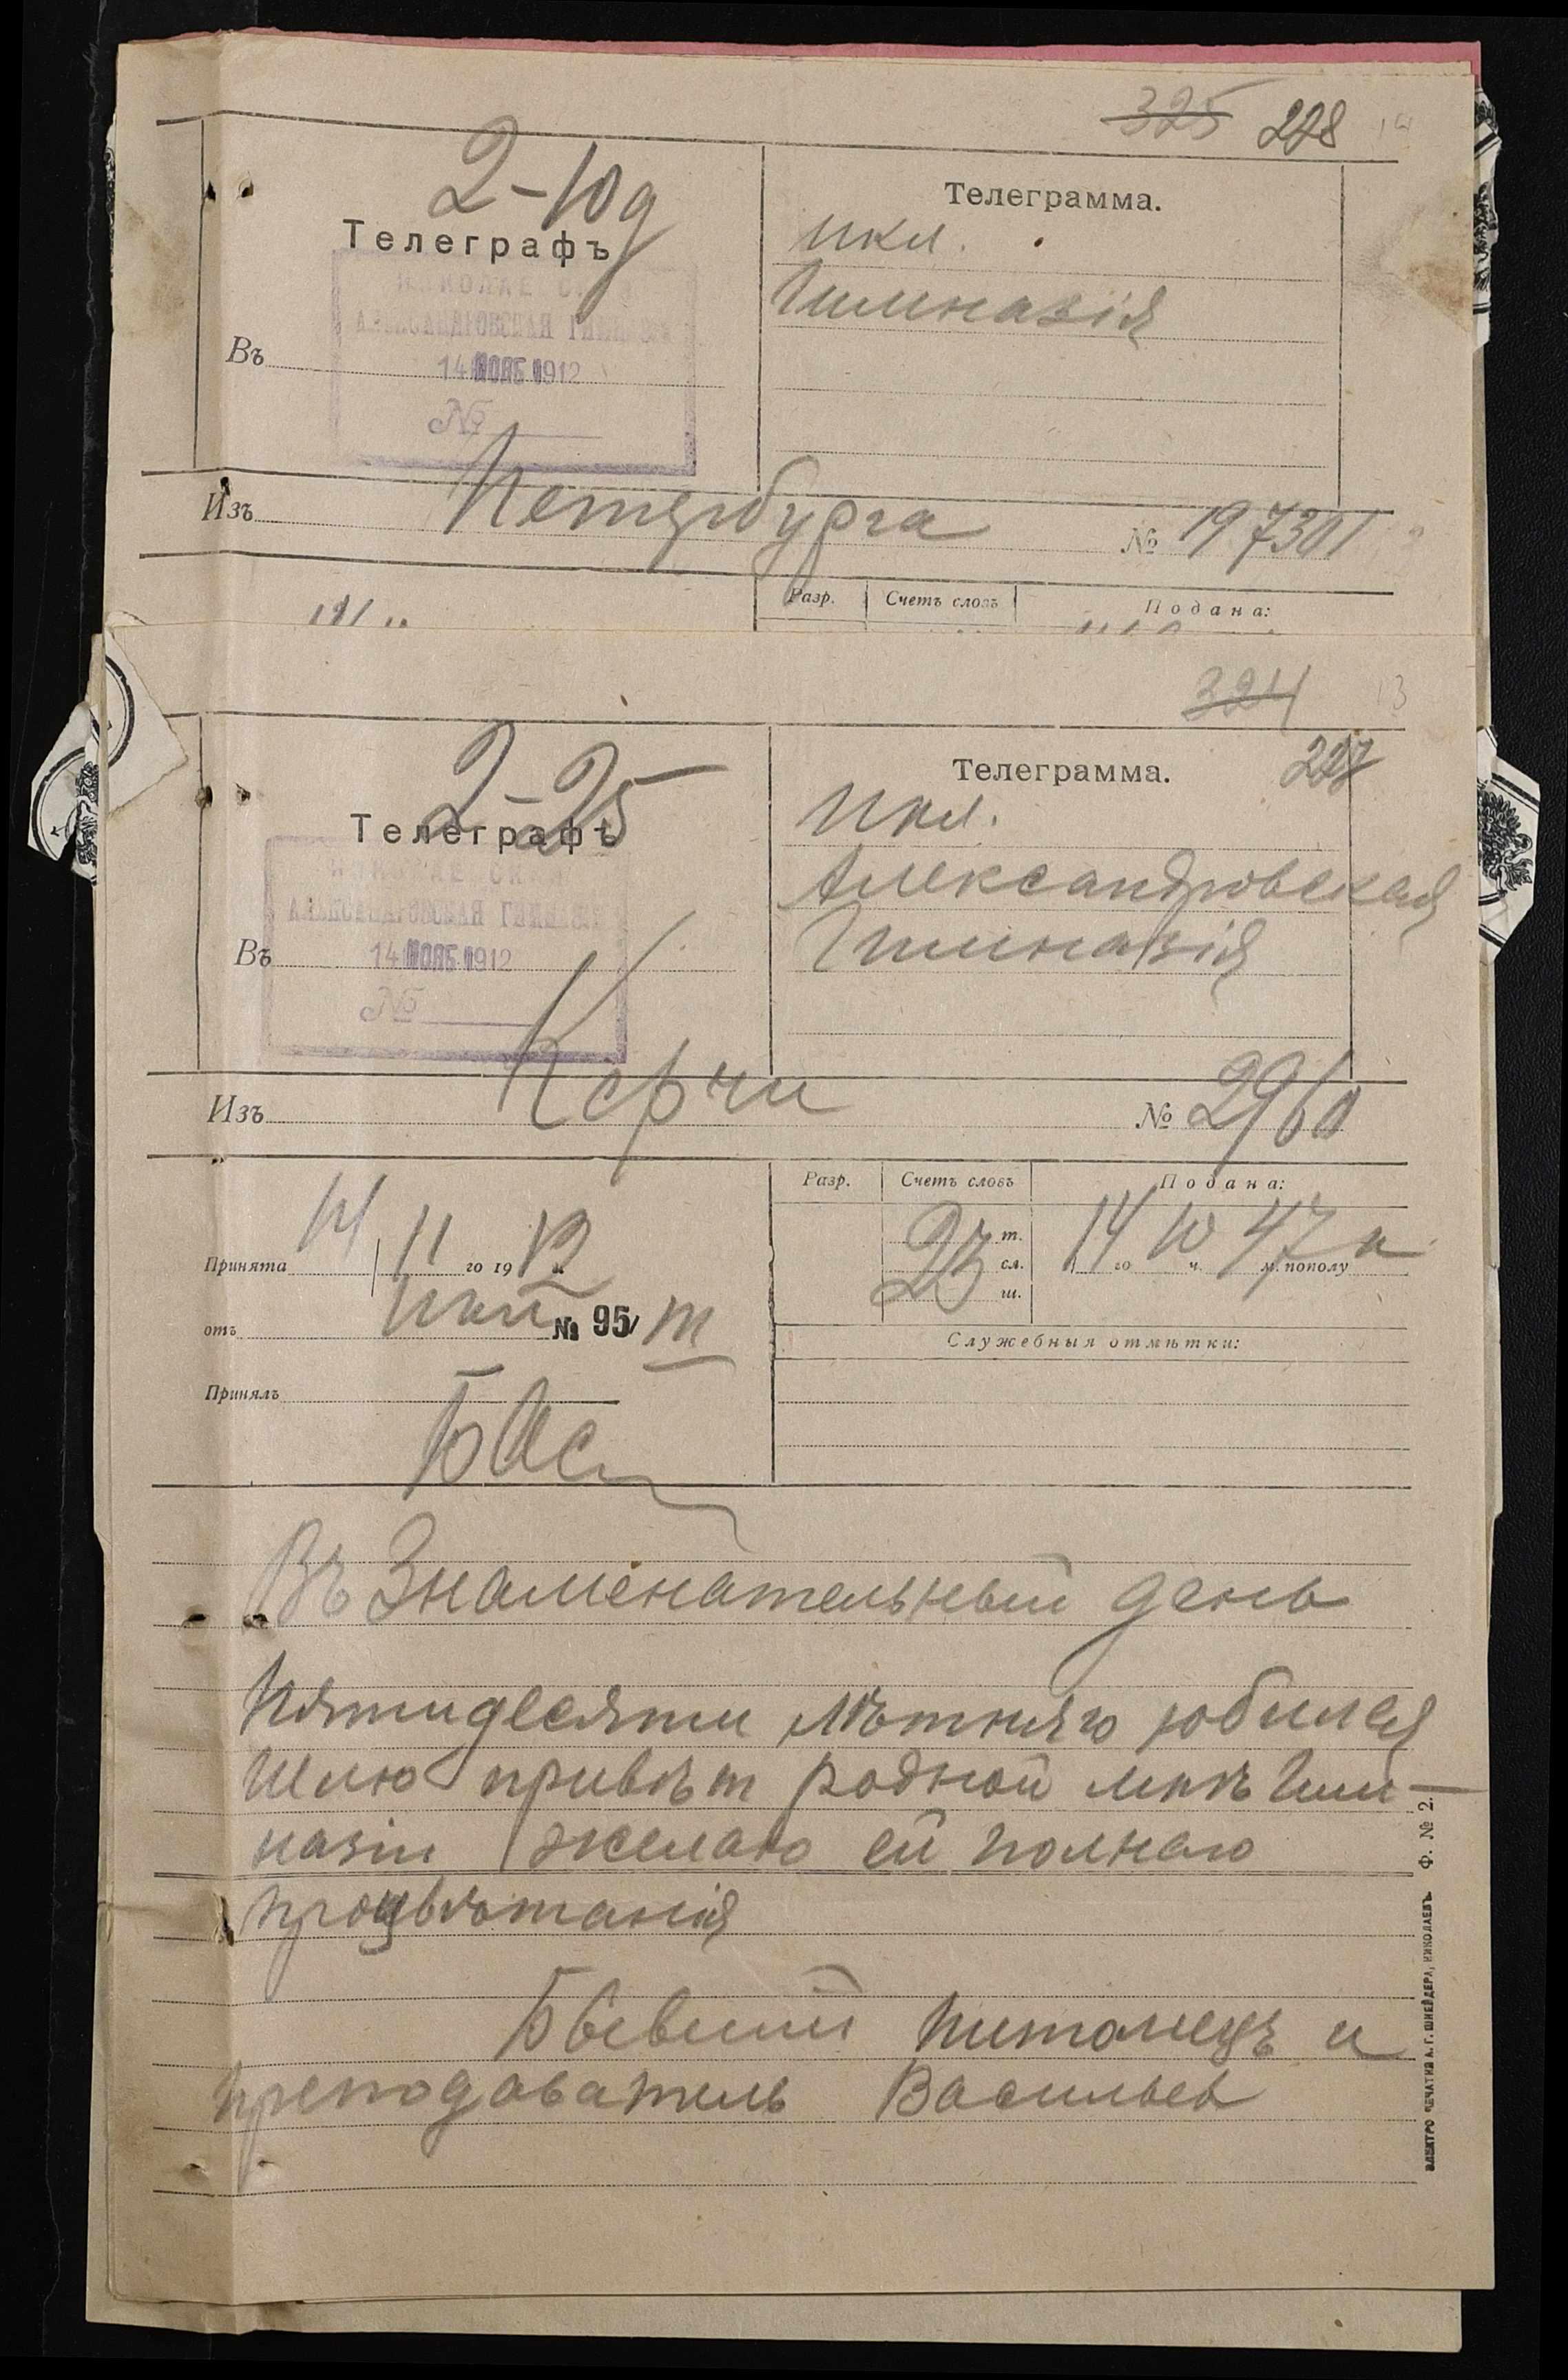 325 228
2-10д
Телеграфъ
НИКОЛАЕВСКАЯ
АЛЕКСАНДРОВСКАЯ ГИМНАЗІЯ
Въ 14 НОЯБ 1912
№
Телеграмма.
Нкл.
Гимназія
Изъ Петербурга № 197301
Разр. Счетъ словъ Подана:
324
227
2-25
Телеграфъ
АЛЕКСАНДРОВСКАЯ ГИМНАЗІЯ
Въ 14 НОЯБ 1912
№
Телеграмма.
Нкл.
Александровская
Гимназія
Изъ Керчи № 2960
Принята 14/11 го 1912
отъ № 95/
Принялъ
Разр. Счетъ словъ Подана:
23 т. сл. ш. 14 го 10 ч. 47 м. пополу н
Служебныя отмѣтки:
Въ Знаменательный день
Пятидесяти лѣтняго юбилея
шлю привѣт родной мнѣ Гим-
назіи желаю ей полнаго
процвѣтанія
Бывший питомецъ и
преподаватель Васильев
Ф. № 2.
ЭЛЕКТРО ПЕЧАТНЯ А. Г. ШНЕЙДЕРА, НИКОЛАЕВЪ